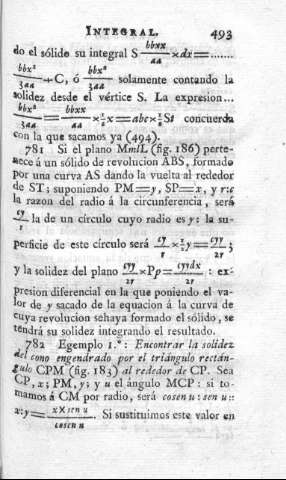 INTEGRAL. 493
do el sólido su integral S bbxx/aa ×dx=.......
bbx³/3aa +C, ó bbx³/3aa solamente contando la
solidez desde el vértice S. La expresion...
bbx³/3aa = bbxx/aa ×⅓x=abc×⅓St concuerda
con la que sacamos ya (494).
781 Si el plano MmlL (fig. 186) perte-
nece á un sólido de revolucion ABS, formado
por una curva AS dando la vuelta al rededor
de ST; suponiendo PM=y, SP=x, y r:c
la razon del radio á la circunferencia, será
cy/r la de un círculo cuyo radio es y: la su-
perficie de este círculo será cy/r ×½y= cyy/2r ;
y la solidez del plano cyy/2r ×Pp= cyydx/2r : ex-
presion diferencial en la que poniendo el va-
lor de y sacado de la equacion á la curva de
cuya revolucion sehaya formado el sólido, se
tendrá su solidez integrando el resultado.
782 Egemplo 1.°: Encontrar la solidez
del cono engendrado por el triángulo rectán-
gulo CPM (fig. 183) al rededor de CP. Sea
CP, x; PM, y; y u el ángulo MCP: si to-
mamos á CM por radio, será cosen u : sen u ::
x:y= x×sen u/cosen u . Si sustituimos este valor en